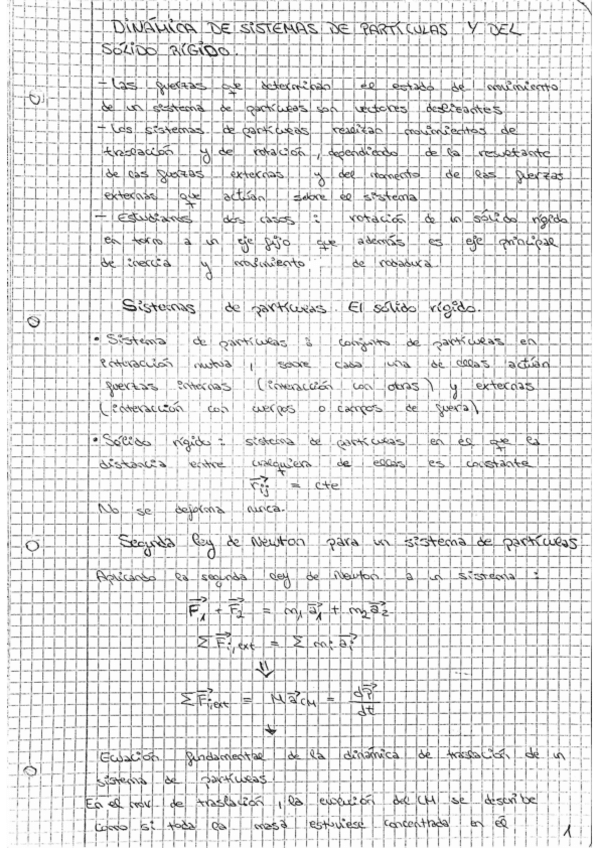 DINÁMICA DE SISTEMAS DE PARTÍCULAS Y DEL
SÓLIDO RÍGIDO.
- Las fuerzas que determinan el estado de movimiento
de un sistema de partículas son vectores deslizantes
- Los sistemas de partículas realizan movimientos de
traslación y de rotación, dependiendo de la resultante
de las fuerzas externas y del momento de las fuerzas
externas que actúan sobre el sistema
- Estudiamos dos casos: rotación de un sólido rígido
en torno a un eje fijo que además es eje principal
de inercia y movimiento de rodadura
Sistemas de partículas. El sólido rígido.
• Sistema de partículas: conjunto de partículas en
interacción mutua, sobre cada una de ellas actúan
fuerzas internas (interacción con otras) y externas
(interacción con cuerpos o campos de fuerza)
• Sólido rígido: sistema de partículas en el que la
distancia entre cualquiera de ellas es constante
r⃗ij = cte
No se deforma nunca.
Segunda ley de Newton para un sistema de partículas
Aplicando la segunda ley de Newton a un sistema:
F⃗1 + F⃗2 = m1 a⃗1 + m2 a⃗2
Σ F⃗i,ext = Σ mi a⃗i
⇓
Σ F⃗i,ext = M a⃗CM = dP⃗/dt
↓
Ecuación fundamental de la dinámica de traslación de un
sistema de partículas.
En el mov. de traslación, la evolución del CM se describe
como si toda la masa estuviese concentrada en él
1